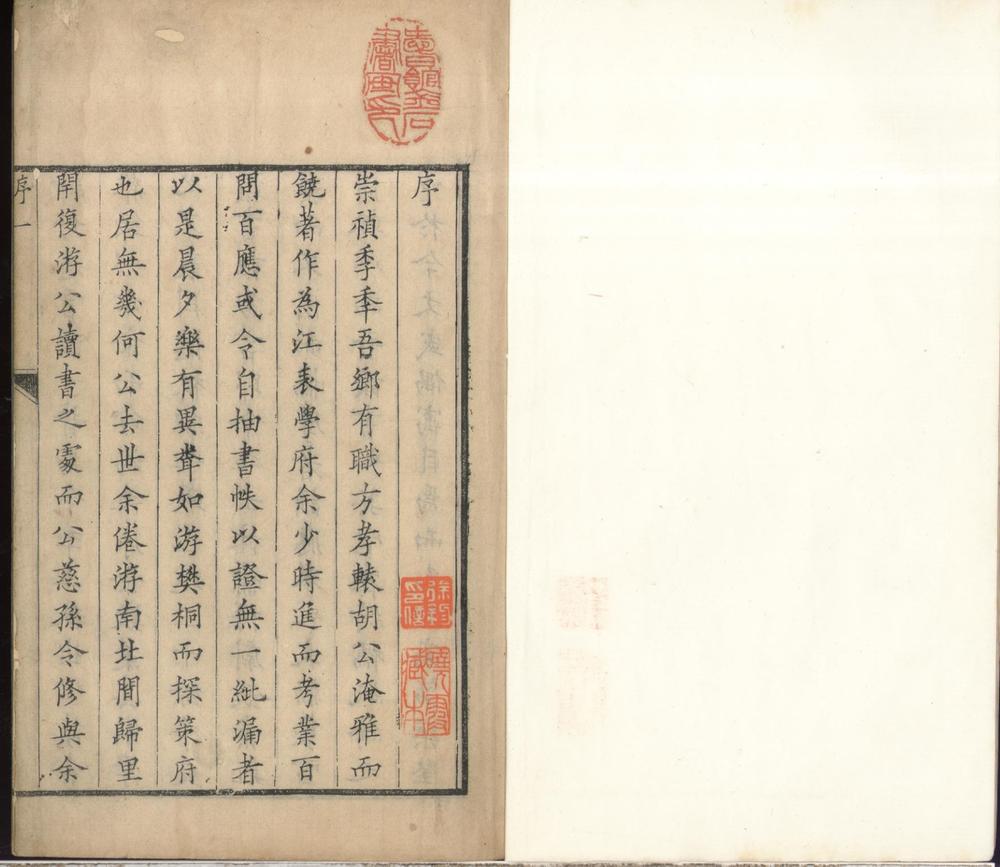 序
崇禎季秊吾鄉有職方孝轅胡公淹雅而
饒著作為江表學府余少時進而考業百
問百應或令自抽書帙以證無一紕漏者
以是晨夕樂有異聳如游樊桐而探策府
也居無幾何公去世余倦游南北閒歸里
閈復游公讀書之處而公慈孫令修與余
序 一
徐鈞印信
曉霞藏本